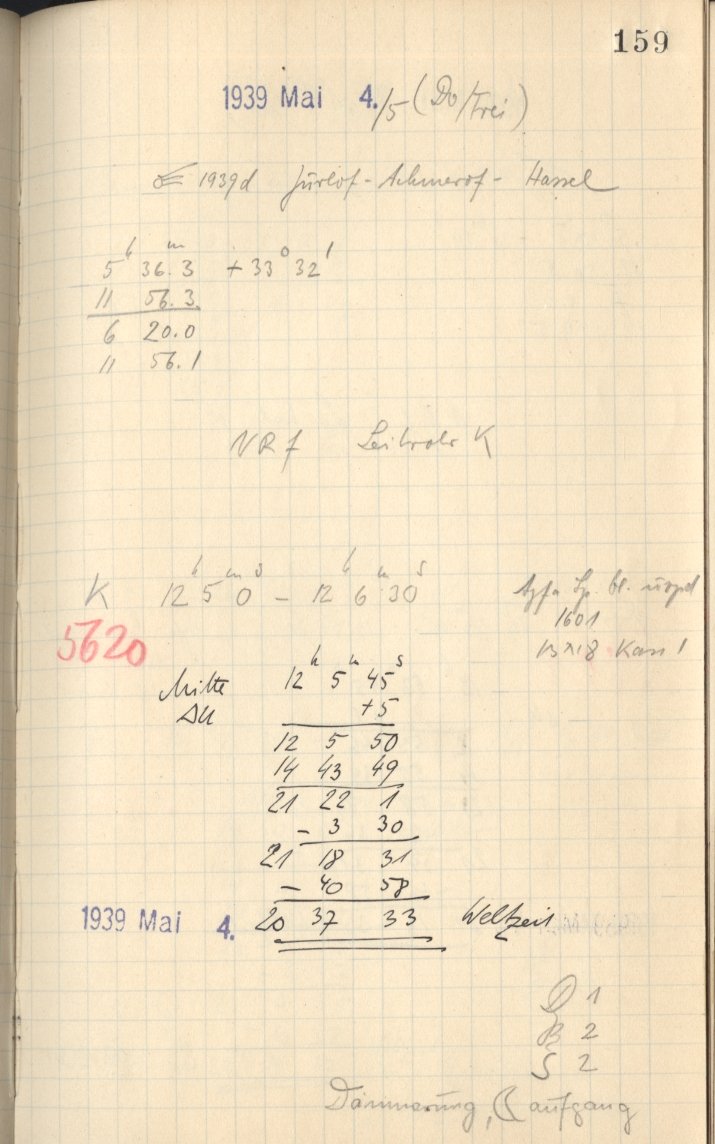 159
1939 Mai 4./5 (Do/Frei)
1939d Jurlof - Achmarof - Hassel
5ʰ 36ᵐ.3 + 33° 32'
11 56.3
6 20.0
11 56.1
NRf Leitrohr K
K 12ʰ 5ᵐ 0ˢ – 12ʰ 6ᵐ 30ˢ
Agfa Sp. bl.
5620
1601
13x18 Kass 1
Mitte 12ʰ 5ᵐ 45ˢ
ΔU +5
12 5 50
14 43 49
21 22 1
- 3 30
21 18 31
- 40 58
1939 Mai 4. 20 37 33 Weltzeit
D 1
B 2
S 2
Dämmerung, ☾ aufgang